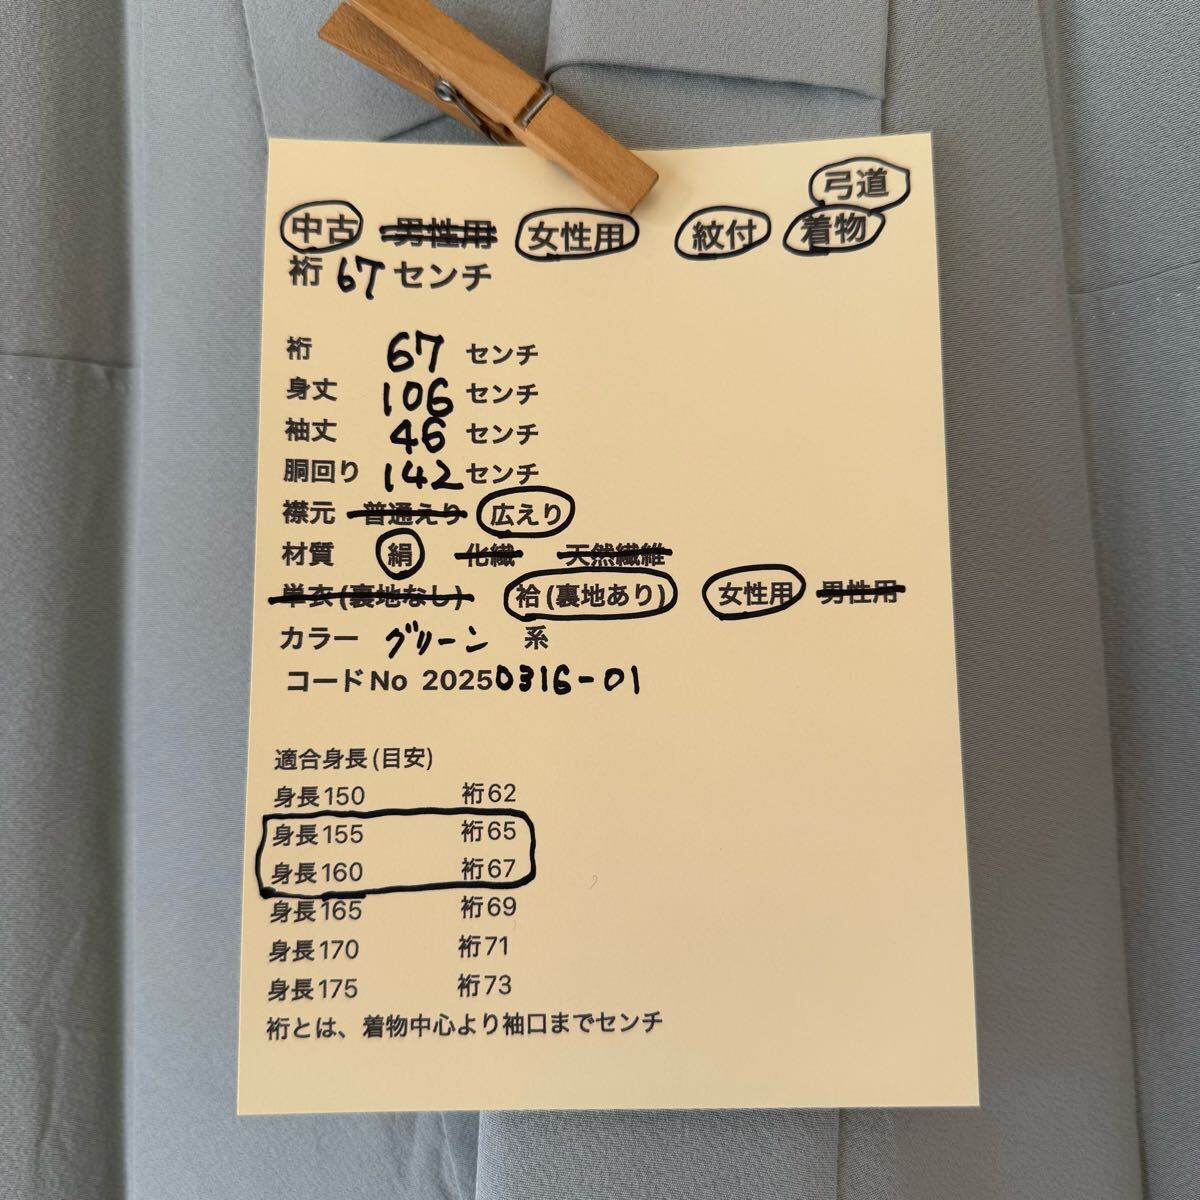 弓道
中古 男性用 女性用 紋付 着物
裄 67 センチ
裄 67 センチ
身丈 106 センチ
袖丈 46 センチ
胴回り 142 センチ
襟元 普通えり 広えり
材質 絹 化繊 天然繊維
単衣(裏地なし) 袷(裏地あり) 女性用 男性用
カラー グリーン 系
コードNo 20250316-01
適合身長(目安)
身長150 裄62
身長155 裄65
身長160 裄67
身長165 裄69
身長170 裄71
身長175 裄73
裄とは、着物中心より袖口までセンチ